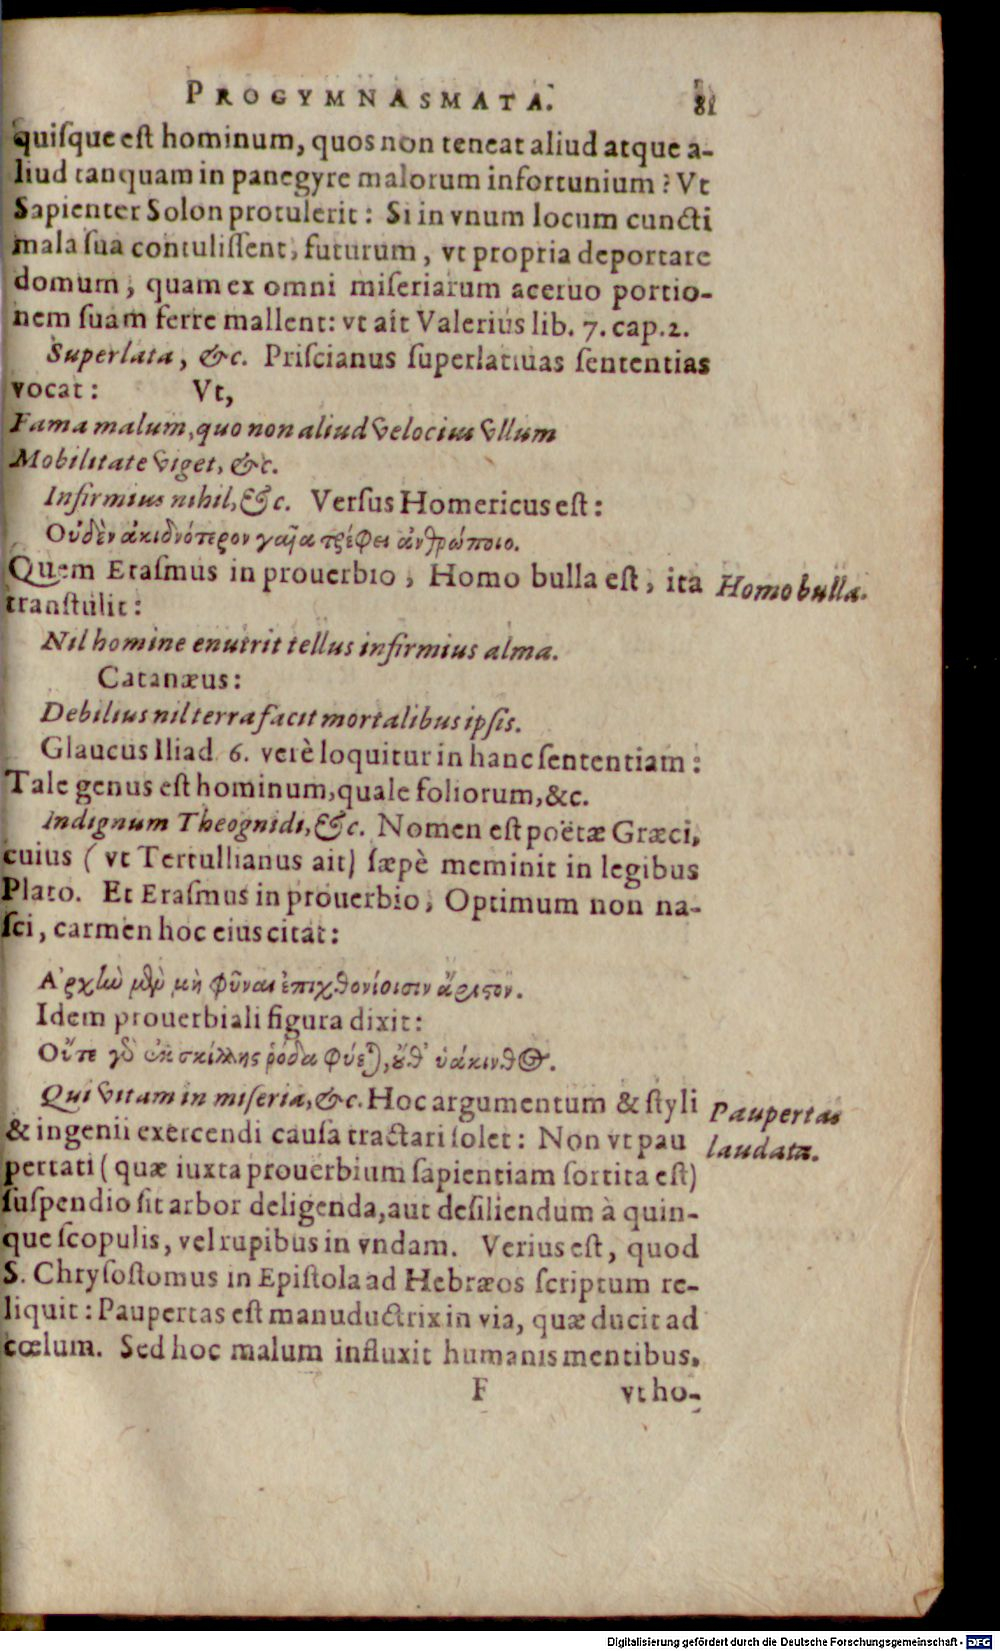 PROGYMNASMATA. 81
quiſque eſt hominum, quos non teneat aliud atque a-
liud tanquam in panegyre malorum infortunium? Vt
Sapienter Solon protulerit: Si in vnum locum cuncti
mala ſua contuliſſent, futurum, vt propria deportare
domum, quam ex omni miſeriarum aceruo portio-
nem ſuam ferre mallent: vt ait Valerius lib. 7. cap. 2.
Superlata, &c. Priſcianus ſuperlatiuas ſententias
vocat: Vt,
Fama malum, quo non aliud velocius vllum
Mobilitate viget, &c.
Infirmius nihil, &c. Verſus Homericus eſt:
Οὐδὲν ἀκιδνότερον γαῖα τρέφει ἀνθρώποιο.
Quem Eraſmus in prouerbio, Homo bulla eſt, ita
Homo bulla.
tranſtulit:
Nil homine enutrit tellus infirmius alma.
Catanæus:
Debilius nil terra facit mortalibus ipſis.
Glaucus Iliad. 6. verè loquitur in hanc ſententiam:
Tale genus eſt hominum, quale foliorum, &c.
Indignum Theognidi, &c. Nomen eſt poëtæ Græci,
cuius (vt Tertullianus ait) ſæpè meminit in legibus
Plato. Et Eraſmus in prouerbio, Optimum non na-
ſci, carmen hoc eius citat:
Ἀρχὴν μὲν μὴ φῦναι ἐπιχθονίοισιν ἄριστον.
Idem prouerbiali figura dixit:
Οὔτε γὰρ ἐκ σκίλλης ῥόδα φύεται, οὐθ' ὑάκινθος.
Qui vitam in miſeria, &c. Hoc argumentum & ſtyli
Paupertas
& ingenii exercendi cauſa tractari ſolet: Non vt pau
laudata.
pertati (quæ iuxta prouerbium ſapientiam ſortita eſt)
ſuſpendio ſit arbor deligenda, aut deſiliendum à quin-
que ſcopulis, vel rupibus in vndam. Verius eſt, quod
S. Chryſoſtomus in Epiſtola ad Hebræos ſcriptum re-
liquit: Paupertas eſt manuductrix in via, quæ ducit ad
cœlum. Sed hoc malum influxit humanis mentibus,
F vt ho-
Digitalisierung gefördert durch die Deutsche Forschungsgemeinschaft - DFG